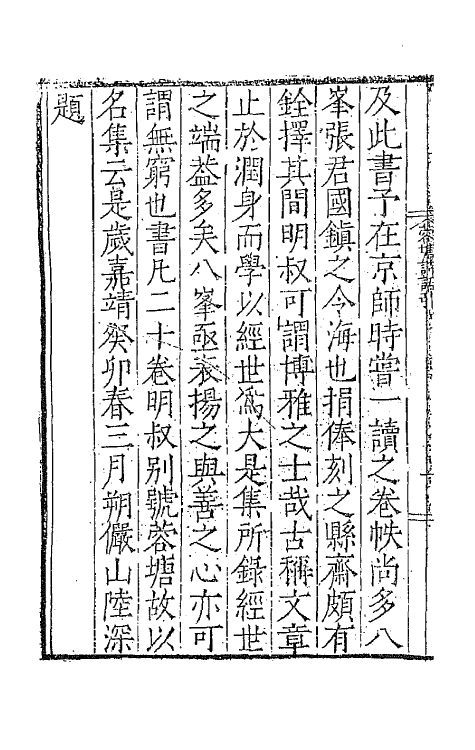 及此書予在京師時嘗一讀之卷帙尚多八
峯張君國鎮之令海也捐俸刻之縣齋頗有
銓擇其間明叔可謂博雅之士哉古稱文章
止於潤身而學以經世爲大是集所錄經世
之端葢多矣八峯亟表揚之與善之心亦可
謂無窮也書凡二十卷明叔别號蓉塘故以
名集云是歲嘉靖癸卯春三月朔儼山陸深
題